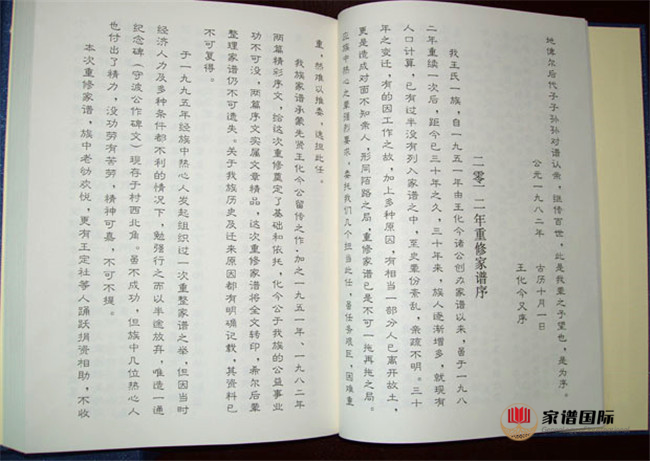 地使尔后代子子孙孙对谱认亲，继传百世，此是我辈之予望也，是为序。
公元一九八二年　古历十月一日
王化今又序
二零一二年重修家谱序
我王氏一族，自一九五一年由王化今诸公创办家谱以来，善于一九八
二年重续一次后，距今已三十年之久，三十年来，族人逐渐增多，就现有
人口计算，已有过半没有列入家谱之中，至史辈份紊乱，亲疏不明。三十
年之变迁，有的因工作之故，加上多种原因，有相当一部分人已离开故土，
更是造成对面不知亲人，形同陌路之局，重修家谱已是不可一拖再拖之局。
应族中热心之辈强烈要求，委托我们几个担当此任，善任务艰巨，困难重
重，然难以推委，遂担此任。
我族家谱承蒙先贤王化今公留传之作，加之一九五一年、一九八二年
两篇精彩序文，给这次重修奠定了基础和依托，化今公于我族的公益事业
功不可没，两篇序文实属文章精品，这次重修家谱将全文转印，希尔后辈
整理家谱仍不可遗失。关于我族历史及迁来原因都有明确记载，其资料已
不可复得。
于一九九五年经族中热心人发起组织过一次重整家谱之举，但因当时
经济人力及多种条件都不利的情况下，勉强行之而以半途放弃，唯造一通
纪念碑（守波公作碑文）现存于村西北角。虽不成功，但族中几位热心人
也付出了精力，没功劳有苦劳，精神可嘉，不可不提。
本次重修家谱，族中老幼欢悦，更有王定社等人踊跃捐资相助，不收
家谱国际